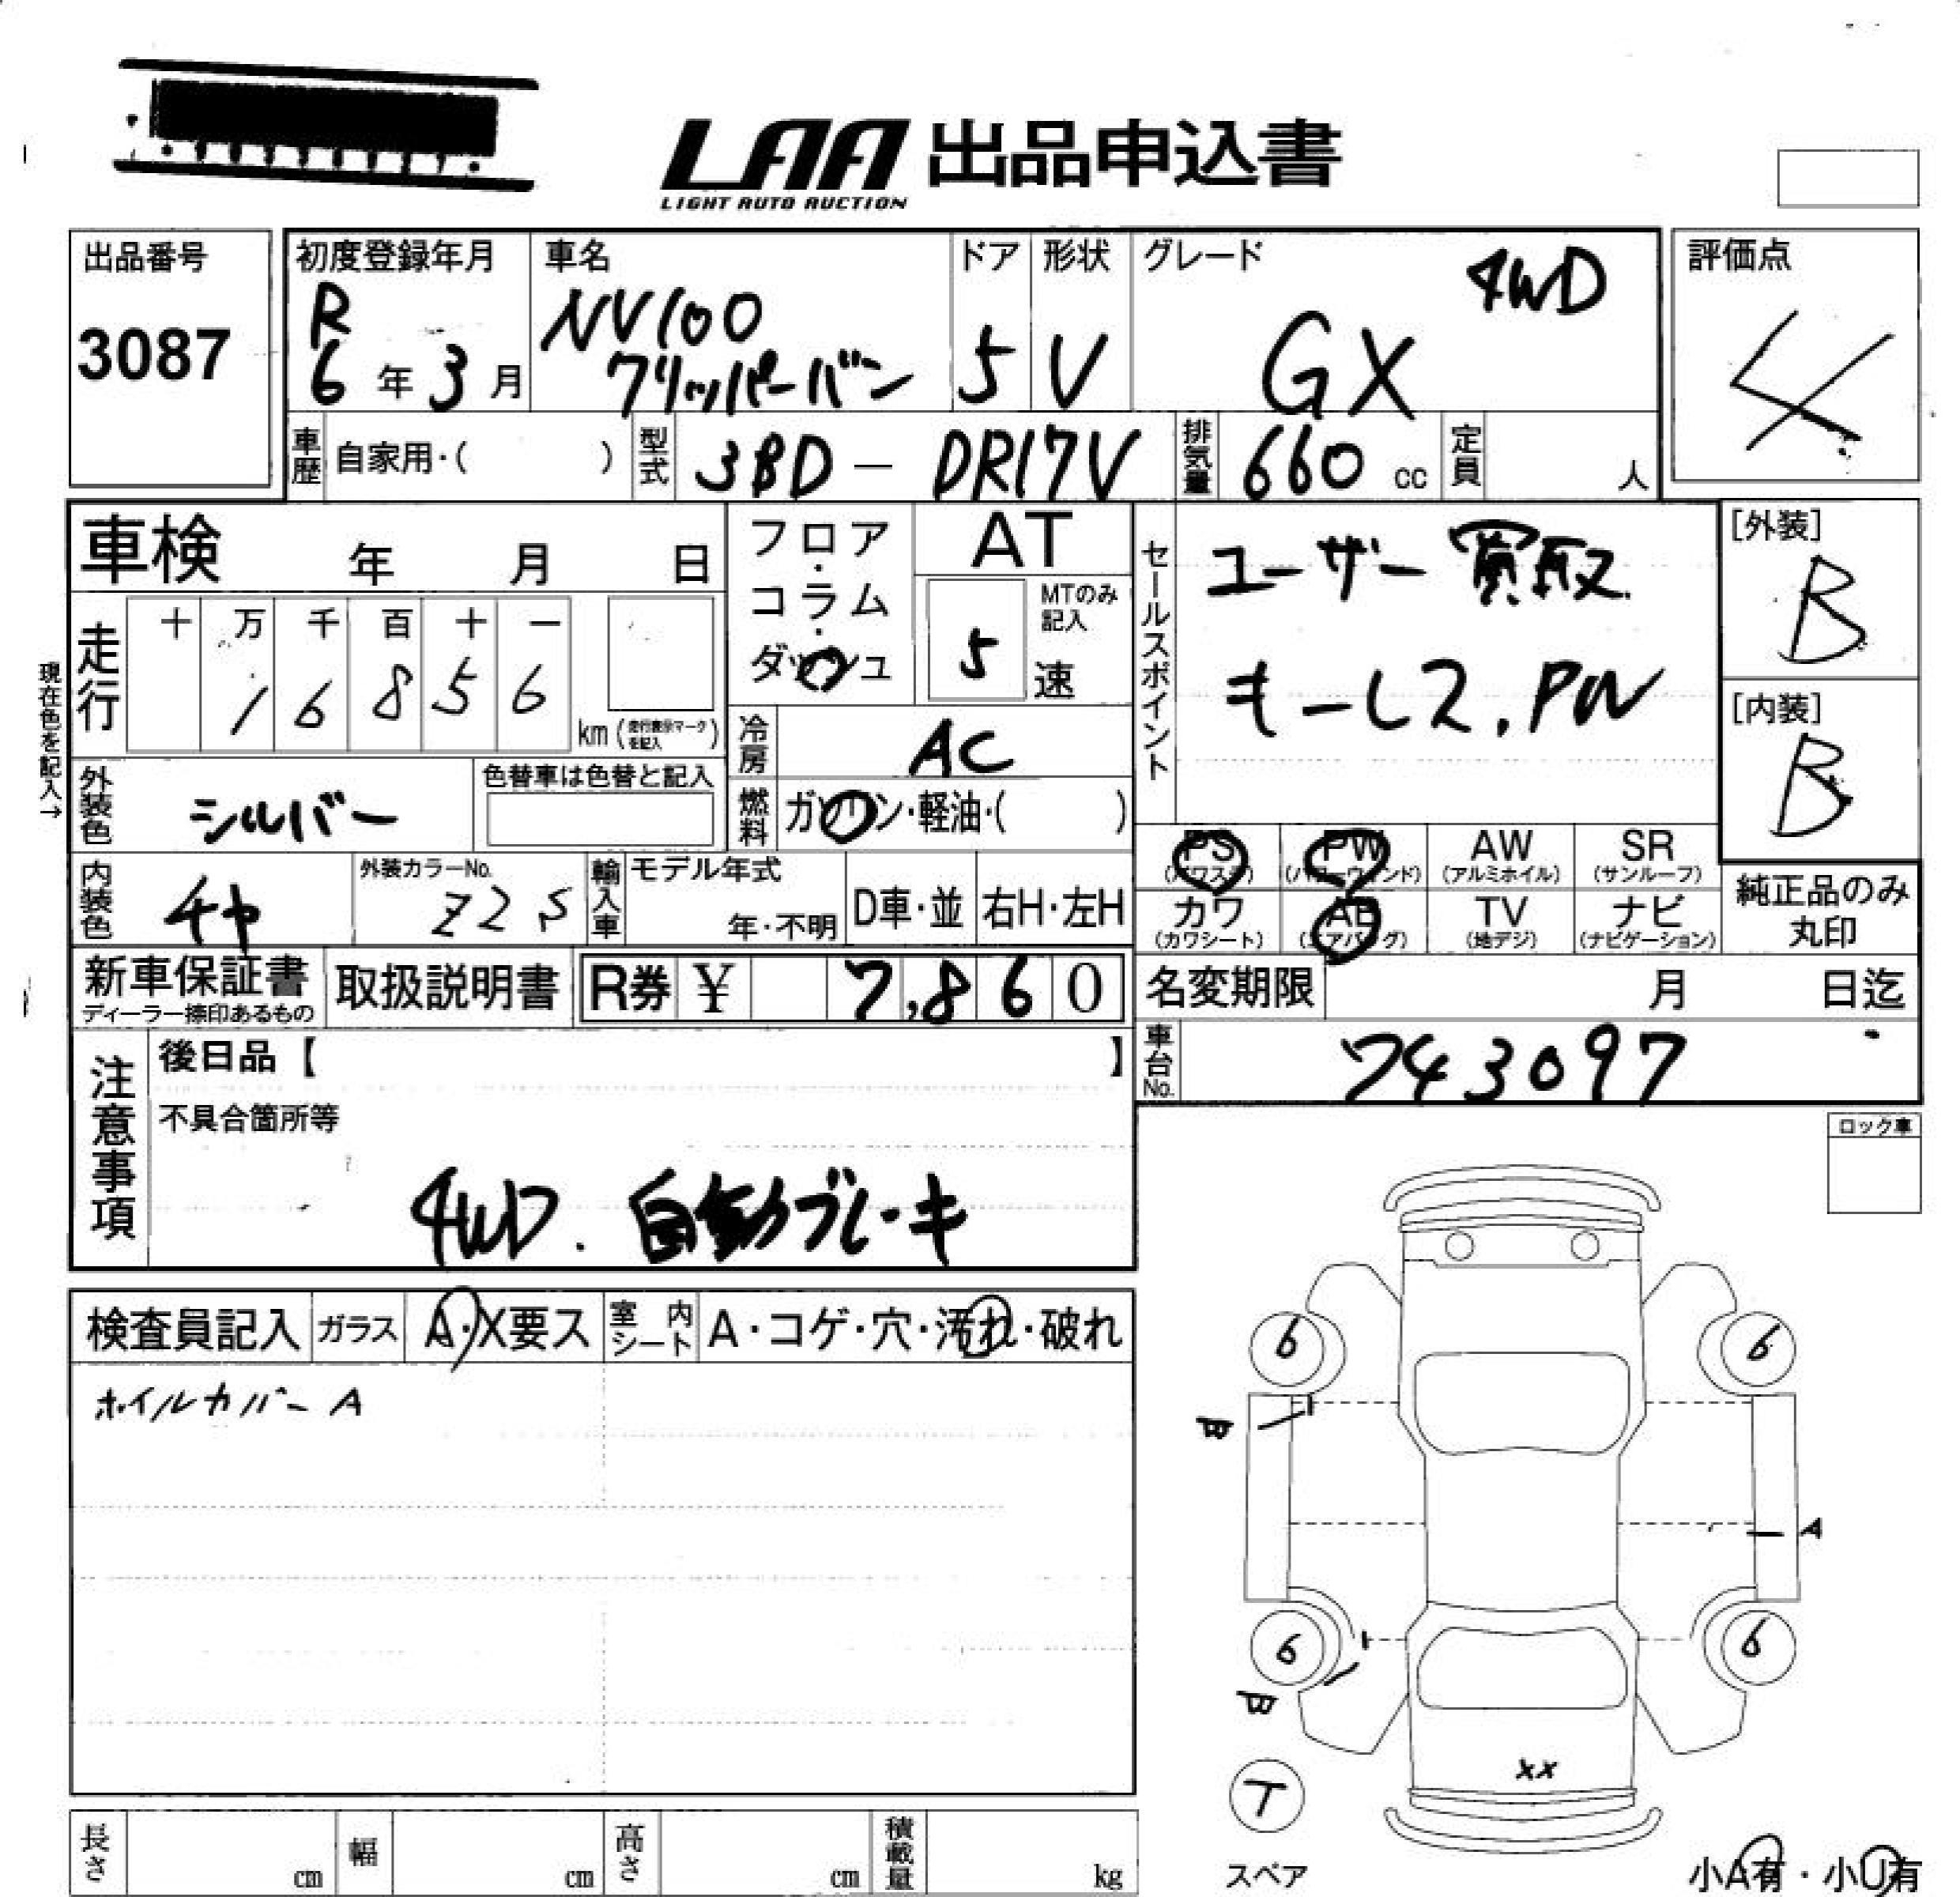 LAA 出品申込書
LIGHT AUTO AUCTION
出品番号
3087
初度登録年月
R
6年3月
車名
NV100
クリッパーバン
ドア
5
形状
V
グレード
4WD
GX
評価点
4
車歴
自家用・( )
型式
3BD - DR17V
排気量
660 cc
定員
人
車検 年 月 日
フロア・コラム・ダッシュ
AT
MTのみ記入
5 速
セールスポイント
ユーザー買取
キーレス、PW
[外装]
B
[内装]
B
現在色を記入→
走行
十 万 千 百 十 一
1 6 8 5 6
km (走行表示マークを記入)
冷房
AC
燃料
ガソリン・軽油・( )
外装色
シルバー
色替車は色替と記入
内装色
チヤ
外装カラーNo.
Z2S
輸入車
モデル年式
年・不明
D車・並
右H・左H
PS
(パワステ)
PW
(パワーウィンド)
AW
(アルミホイル)
SR
(サンルーフ)
カワ
(カワシート)
AB
(エアバッグ)
TV
(地デジ)
ナビ
(ナビゲーション)
純正品のみ
丸印
新車保証書
ディーラー捺印あるもの
取扱説明書
R券 ¥ 7,860
名変期限 月 日迄
車台No.
743097
注意事項
後日品【 】
不具合箇所等
4WD. 自動ブレーキ
ロック車
検査員記入
ガラス
A・X要ス
室内シート
A・コゲ・穴・汚れ・破れ
ホイルカバー A
6
6
B
A
6
6
B
XX
T
スペア
小A有・小U有
長さ cm
幅 cm
高さ cm
積載量 kg